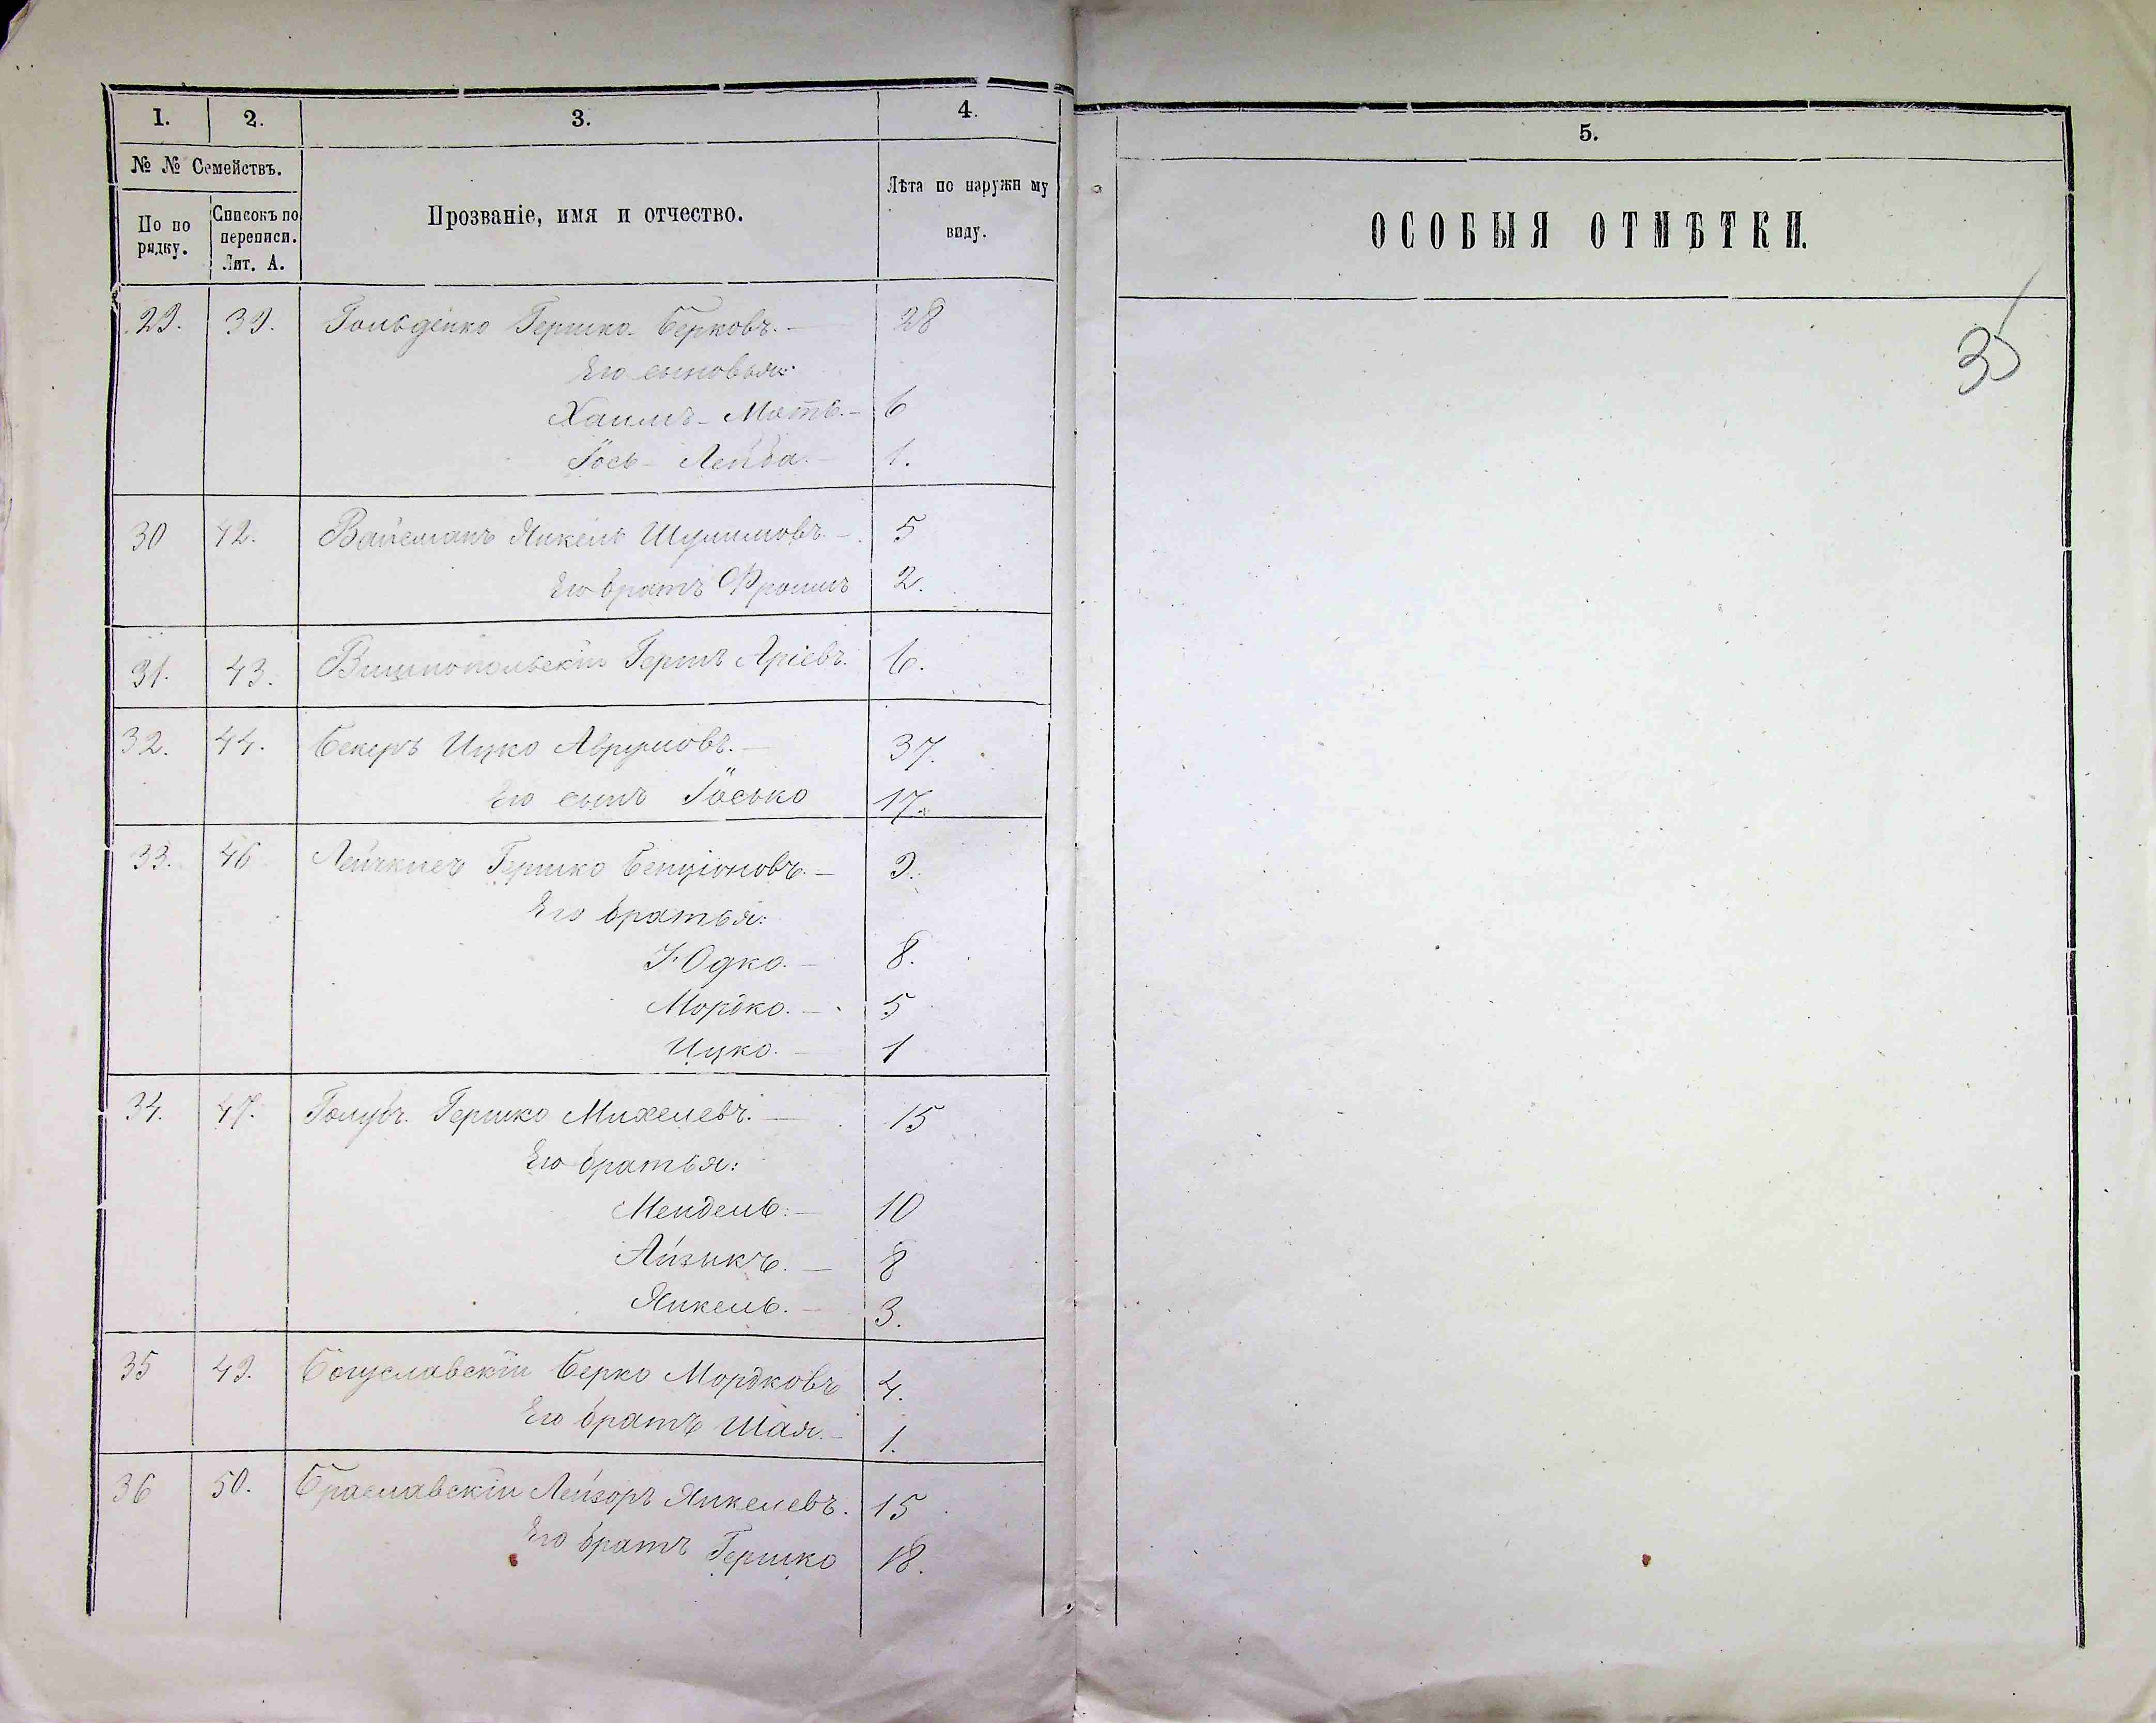 1. 2. 3. 4.
№ № Семействъ.
По по рядку. Списокъ по переписи. Лит. А. Прозваніе, имя и отчество. Лѣта по наружн му виду.
29. 39. Гольденко Гершко Берковъ. — 28
Его сыновья:
Хаимъ-Моть. — 6
Іось-Лейба. — 1.
30 42. Вайсманъ Янкель Шулимовъ. — 5
Его братъ Фроимъ 2.
31. 43. Вишнопольскій Гершъ Аріевъ. 6.
32. 44. Бекеръ Ицко Аврумовъ. — 37.
Его сынъ Іосько 17.
33. 46 Гершко Бенціоновъ. — 9.
Его братья:
Юдко. — 8.
Мордко. — 5
Ицко. — 1
34. 47. Голубъ. Гершко Михелевъ. — 15
Его братья:
Мендель. — 10
Айзыкъ. — 8
Янкель. — 3.
35 49. Богуславскій Берко Мордковъ 4.
Его братъ Шая. — 1.
36 50. Браславскій Лейзоръ Янкелевъ. 15
Его братъ Гершко 18.
5.
ОСОБЫЯ ОТМѢТКИ.
35